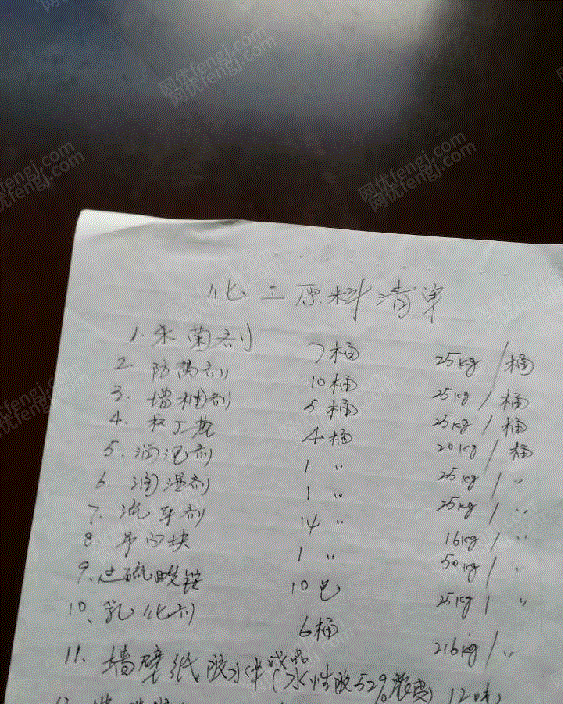 化二原料清单
1. 杀菌剂 7桶 25kg/桶
2. 防腐剂 10桶 25kg/桶
3. 增稠剂 5桶 25kg/桶
4. 4桶 20kg/桶
5. 润湿剂 1〃 25kg/〃
6. 润湿剂 1〃 25kg/〃
7. 流平剂 14〃 16kg/〃
8. 1〃 50kg/〃
9. 过硫酸铵 10包 25kg/〃
10. 乳化剂 6桶 216kg/〃
11. 墙壁纸胶水半成品(水性胶52%浓度)12吨
网优fengj.com